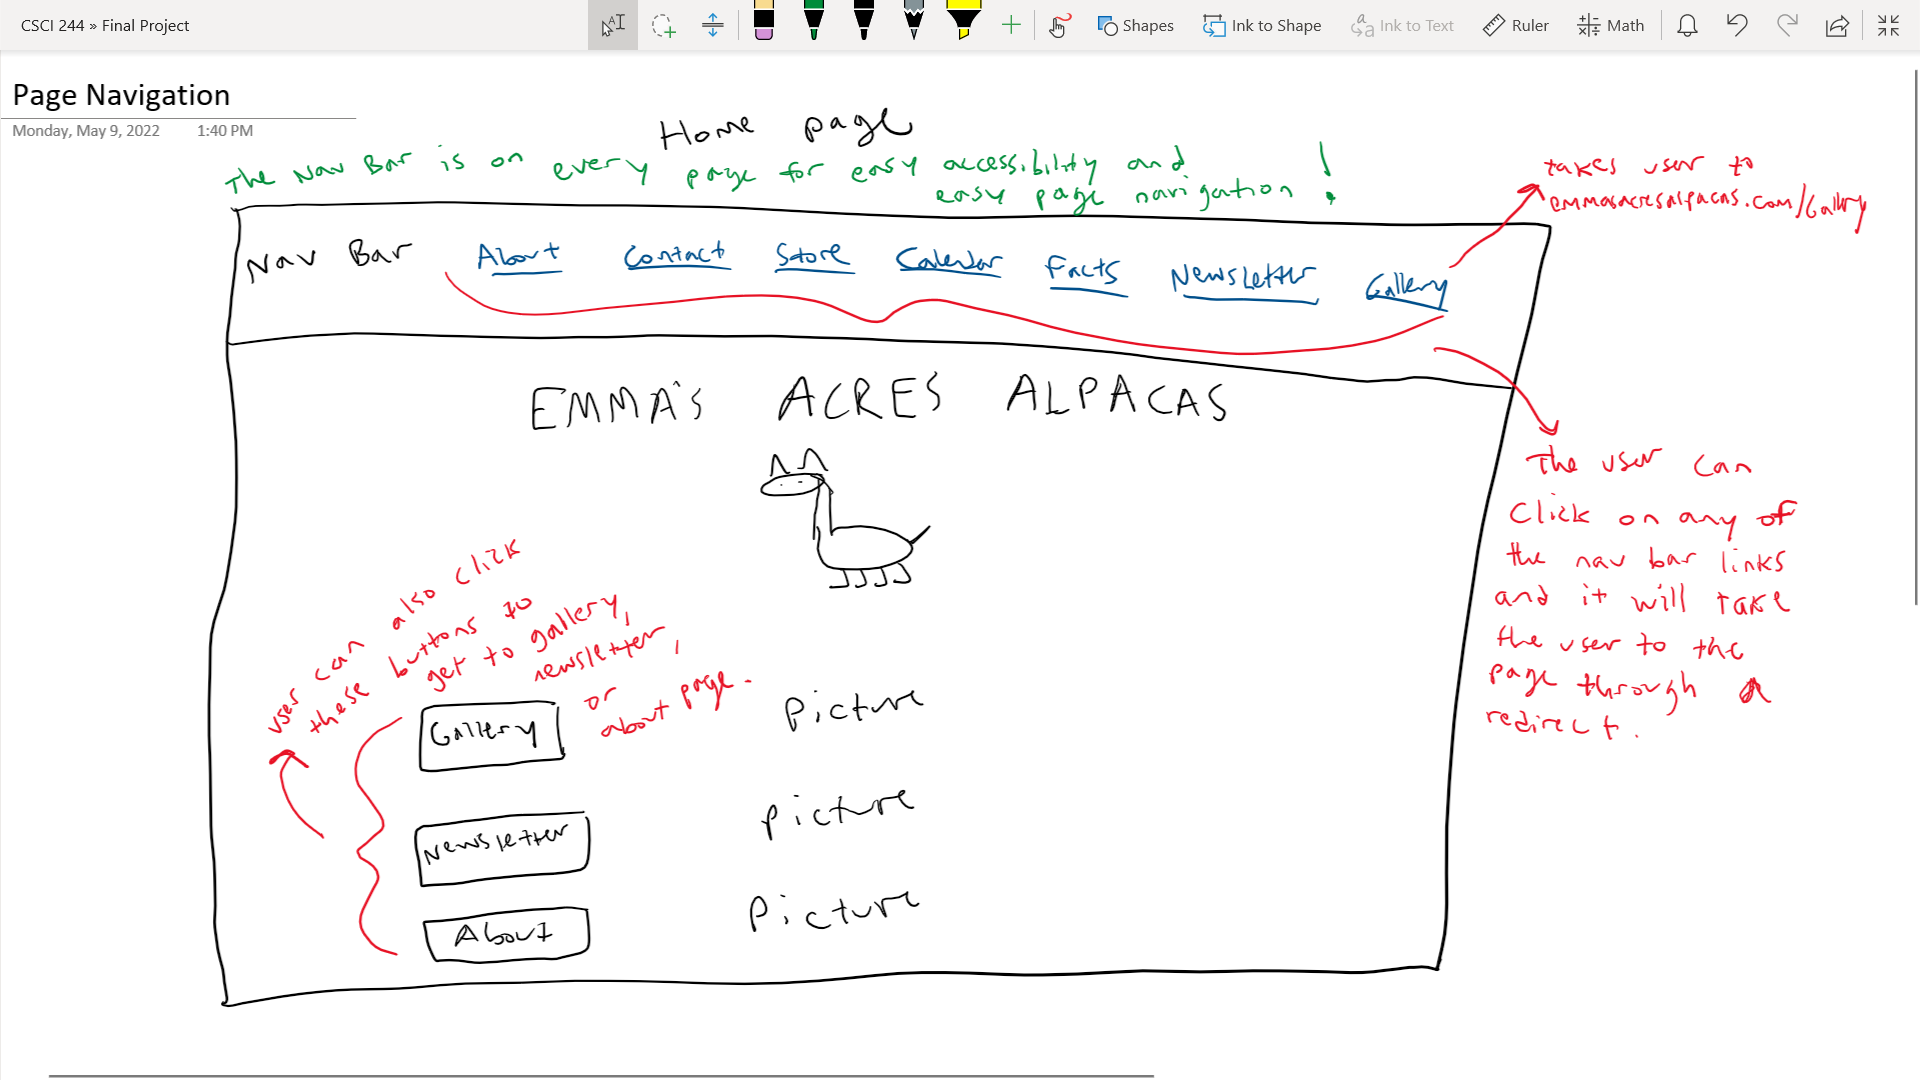 CSCI 244 » Final Project
Shapes
Ink to Shape
Ink to Text
Ruler
Math
Page Navigation
Monday, May 9, 2022 1:40 PM
Home page
The Nav Bar is on every page for easy accessibility and
easy page navigation!
takes user to
emmasacresalpacas.com/Gallery
Nav Bar About Contact Store Calendar Facts Newsletter Gallery
EMMA'S ACRES ALPACAS
The user can
click on any of
the nav bar links
and it will take
the user to the
page through a
redirect.
user can also click
these buttons to
get to gallery,
newsletter,
or
about page.
Gallery Picture
Newsletter Picture
About Picture